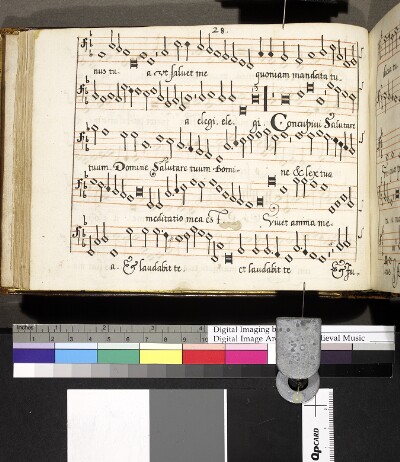 28.
nus tu. a et salvet me quoniam mandata tu.
a elegi. ele. gi. Concupivi Salutare
tuum Domine Salutare tuum Domi-
ne & lex tua
meditatio mea est Vivet anima me.
a. & laudabit te et laudabit te & Iu.
inches 1 2 3
Digital Imaging b
Digital Image Ar edieval Music
QPCARD